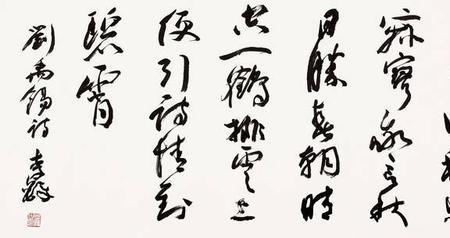 寂寥我言秋
日勝春朝晴
空一鶴排雲上
便引詩情到
碧霄
劉禹錫詩 李鐸